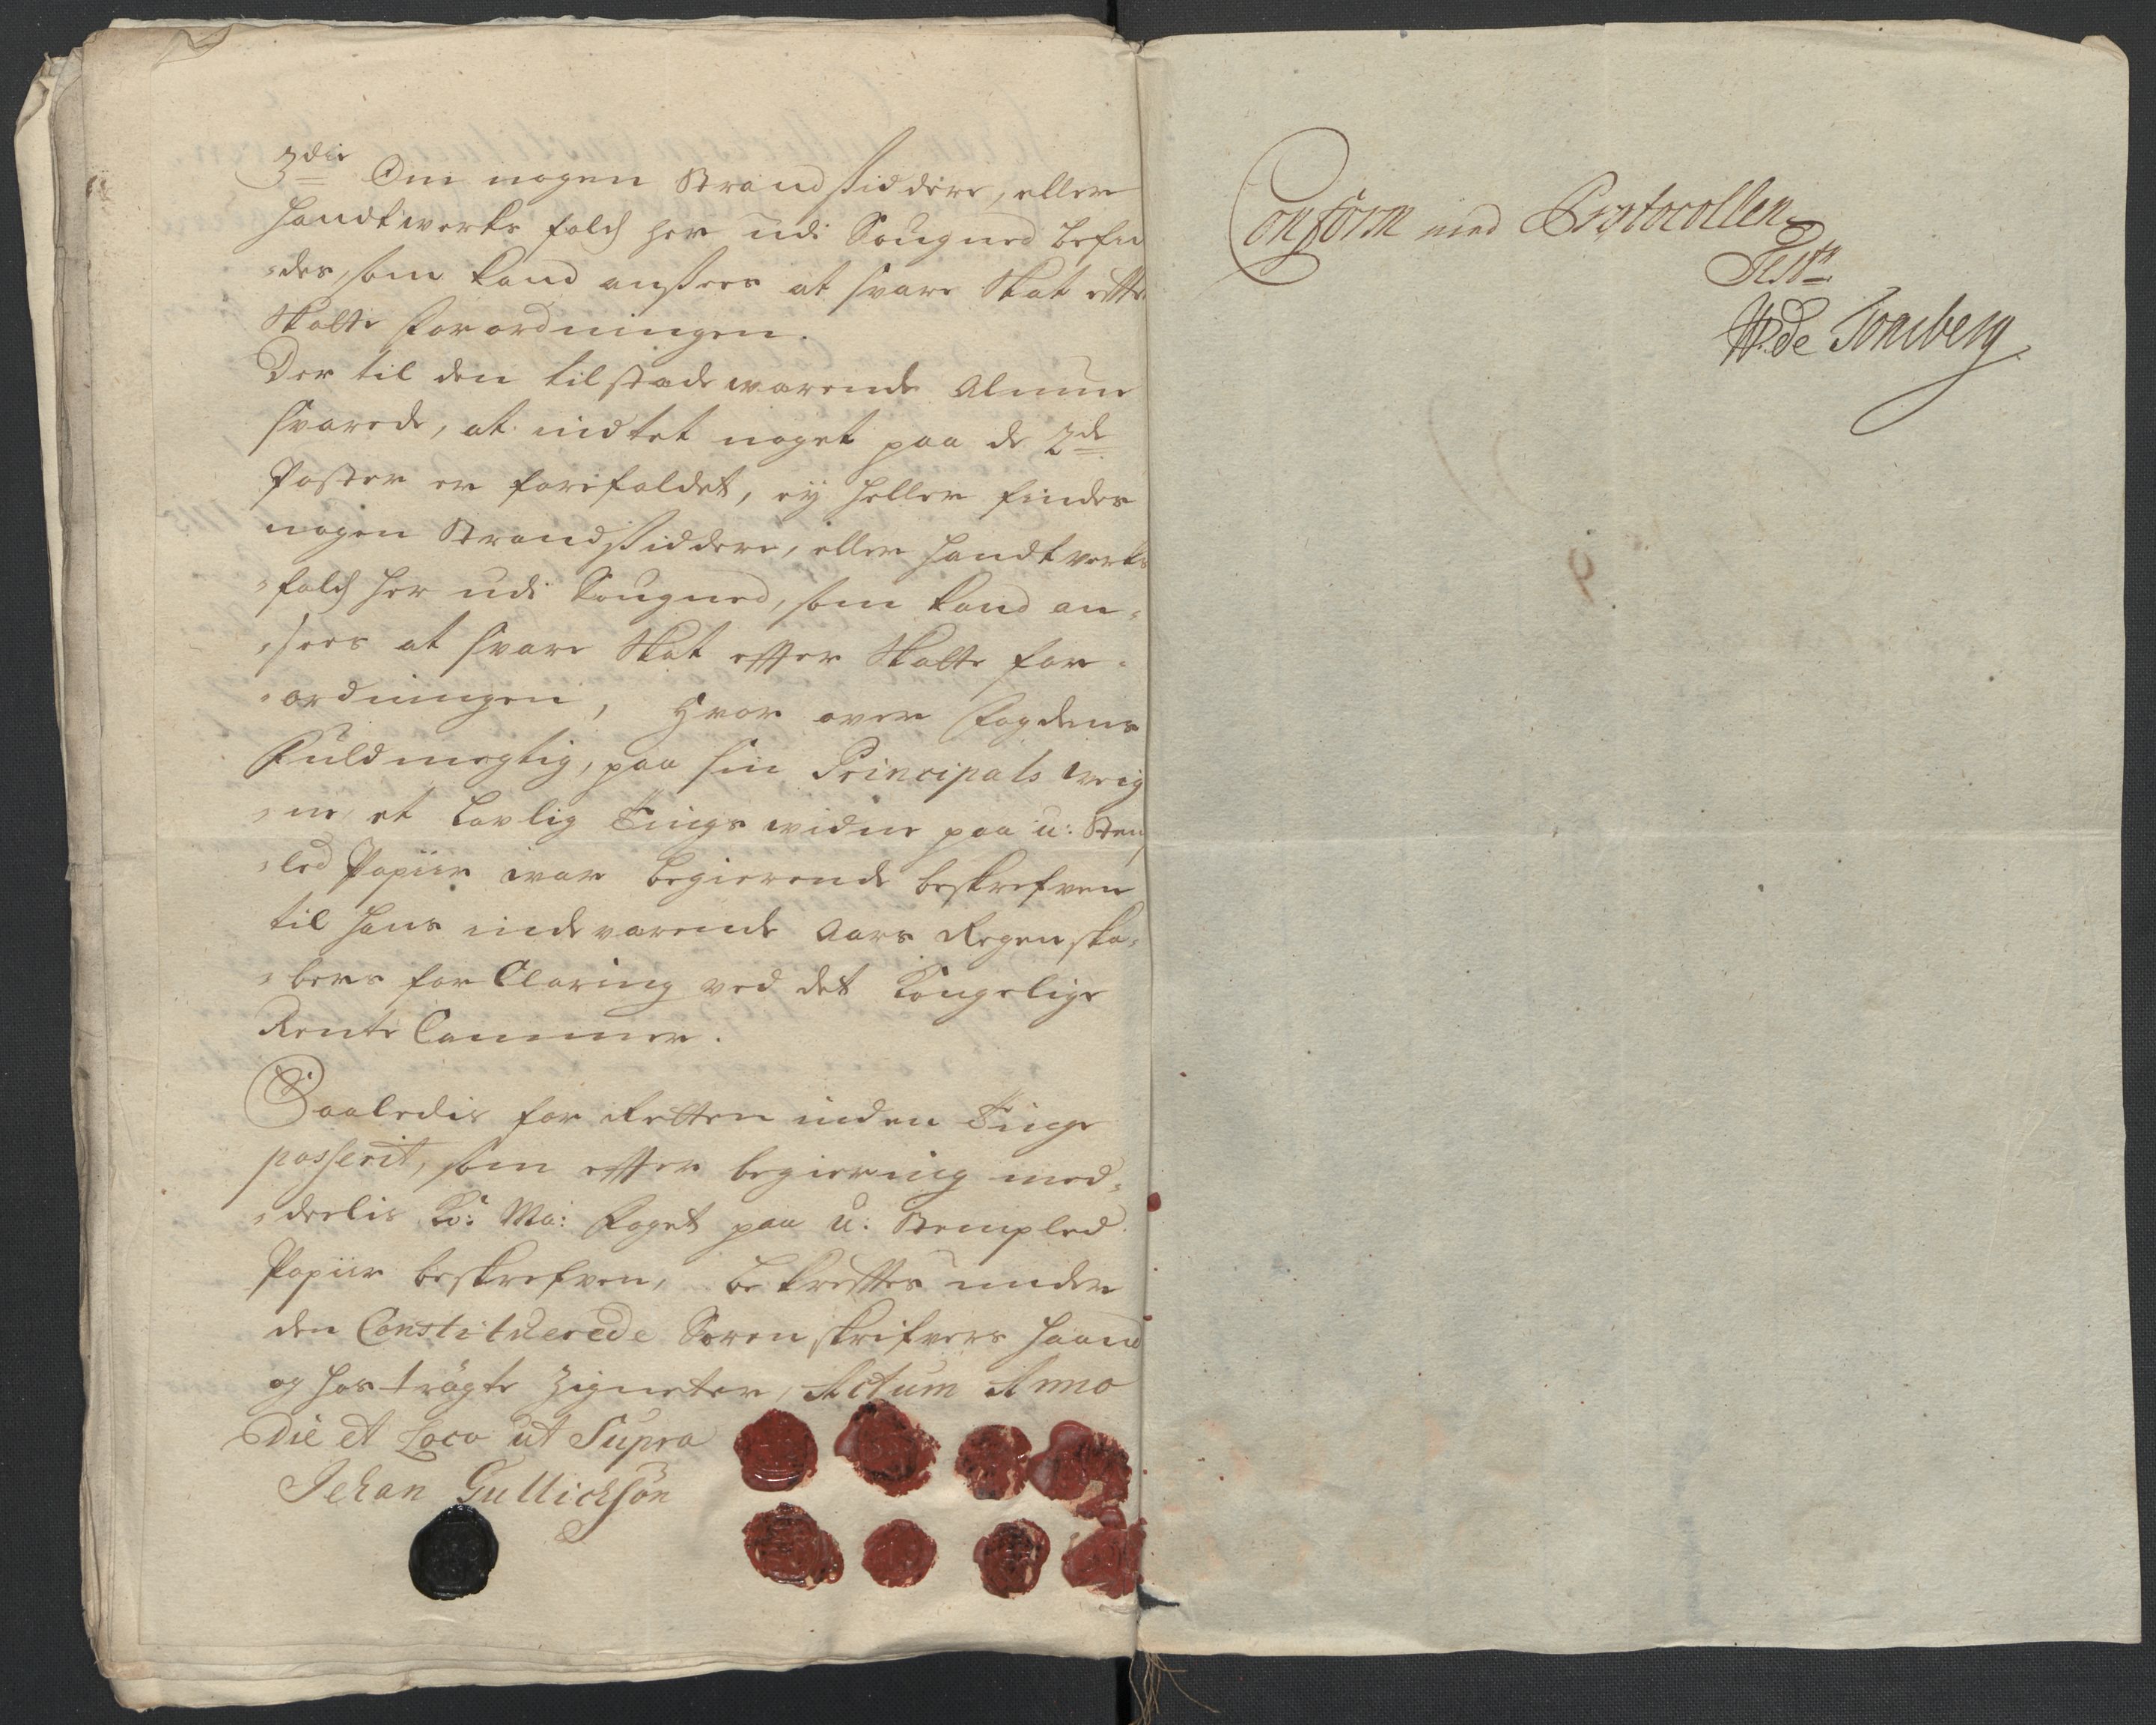 3die Om nogen Strandsiddere, eller
Handtwerks folch her udi Sougned befin
„des, som kand ansees at svare Skat effter
Skatte forordningen.
Der til den tilstædewærende Almue
svarede, at indtet noget paa de 2de
Poster er forefaldet, ey heller findes
nogen Strandsiddere, eller Handtverks
„folch her udi Sougned, som kand an„
„sees at svare Skat effter Skatte for„
„ordningen, Hvor over Fogdens
Fuldmegtig, paa sin Principals veig
„ne, et Lovlig Tings widne paa u: Stemp
„led Papiir war begierende beskrefven
til hans indeværende Aars Regenska„
„bers for Claring ved det Kongelige
Rente Cammer.
Saaledis for Retten inden Tinge
passerit, som effter begiering med„
„deelis Ko: Ma: Foget paa U: Stempled
Papiir beskrefven, bekreffter under
den Constituerede Sorenskrifvers Haand
og hoströgte Zigneter, Actum Anno
Die et Loco ut Supra
Jehan Gullichsön
Conform med Protocollen
Test
WdeTonsberg